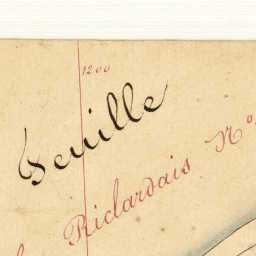 1200
Feuille
Riclardais N°